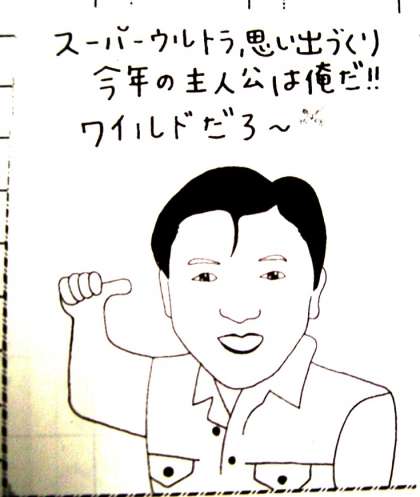 スーパーウルトラ,思い出づくり
今年の主人公は俺だ!!
ワイルドだろ〜